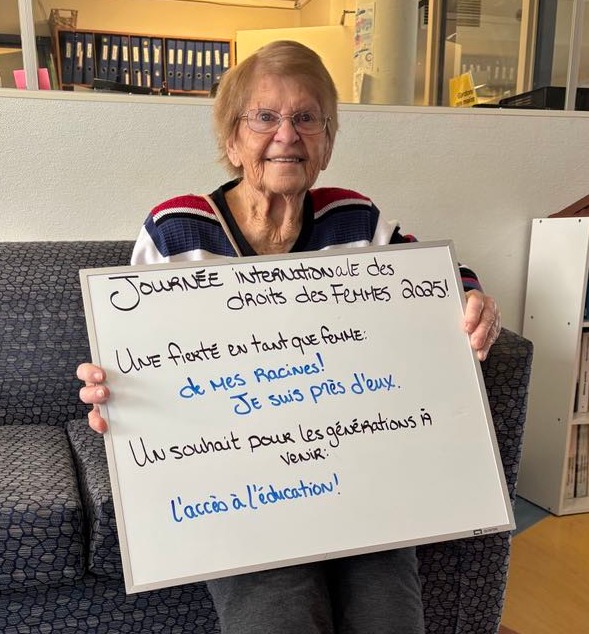 Journée internationale des
droits des femmes 2025!
Une fierté en tant que femme:
de mes racines!
Je suis près d'eux.
Un souhait pour les générations à
venir:
l'accès à l'éducation!